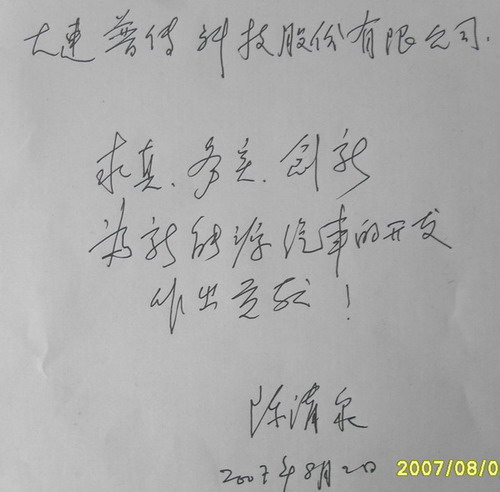 大连普传科技股份有限公司.
求真、务实、创新
为新能源汽车的开发
作出贡献！
陈清泉
2007年8月2日
2007/08/0